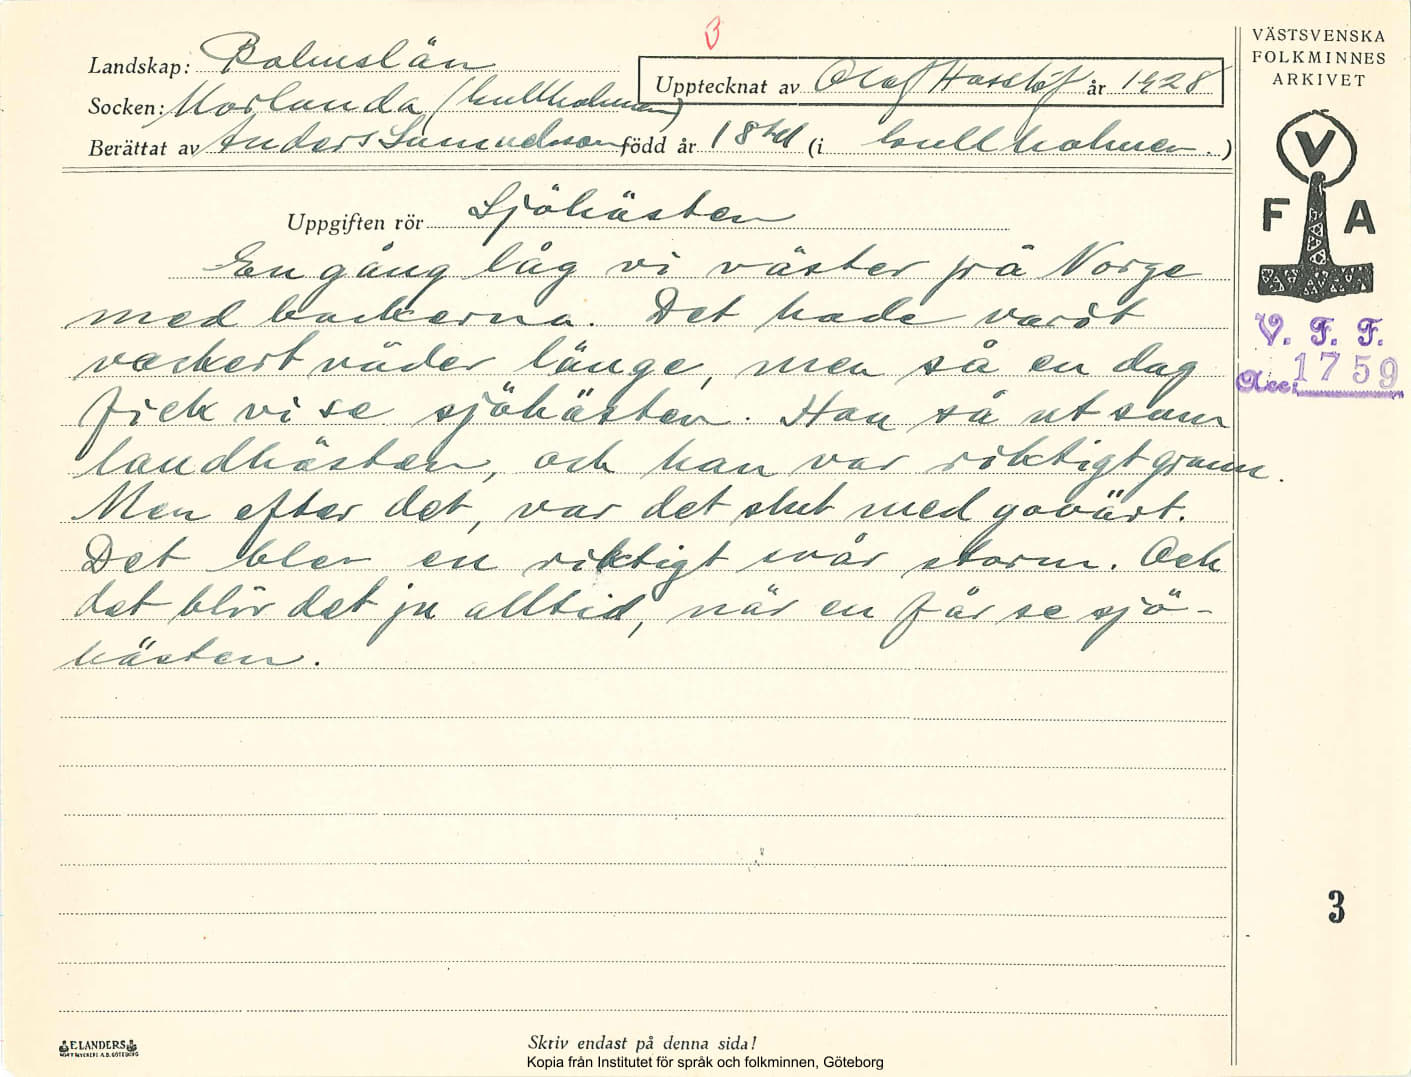 3
VÄSTSVENSKA
FOLKMINNES
ARKIVET
Landskap: Bohuslän
Upptecknat av Olof Hasslöf år 1928
Socken: Morlanda (Gullholmen)
Berättat av Anders Samuelsson född år 18 (i Gullholmen.)
V
F A
V. F. F.
Acc: 1759
Uppgiften rör Sjöhästen
En gång låg vi väster på Norge
med backerna. Det hade varit
vackert väder länge, men så en dag
fick vi se sjöhästen. Han så ut som
landhästen, och han var riktigt grann.
Men efter det, var det slut med govärt.
Det blev en riktigt svår storm. Och
det blir det ju alltid, när en får se sjö-
hästen.
3
ELANDERS
BOKTRYCKERI A.B. GÖTEBORG
Skriv endast på denna sida!
Kopia från Institutet för språk och folkminnen, Göteborg